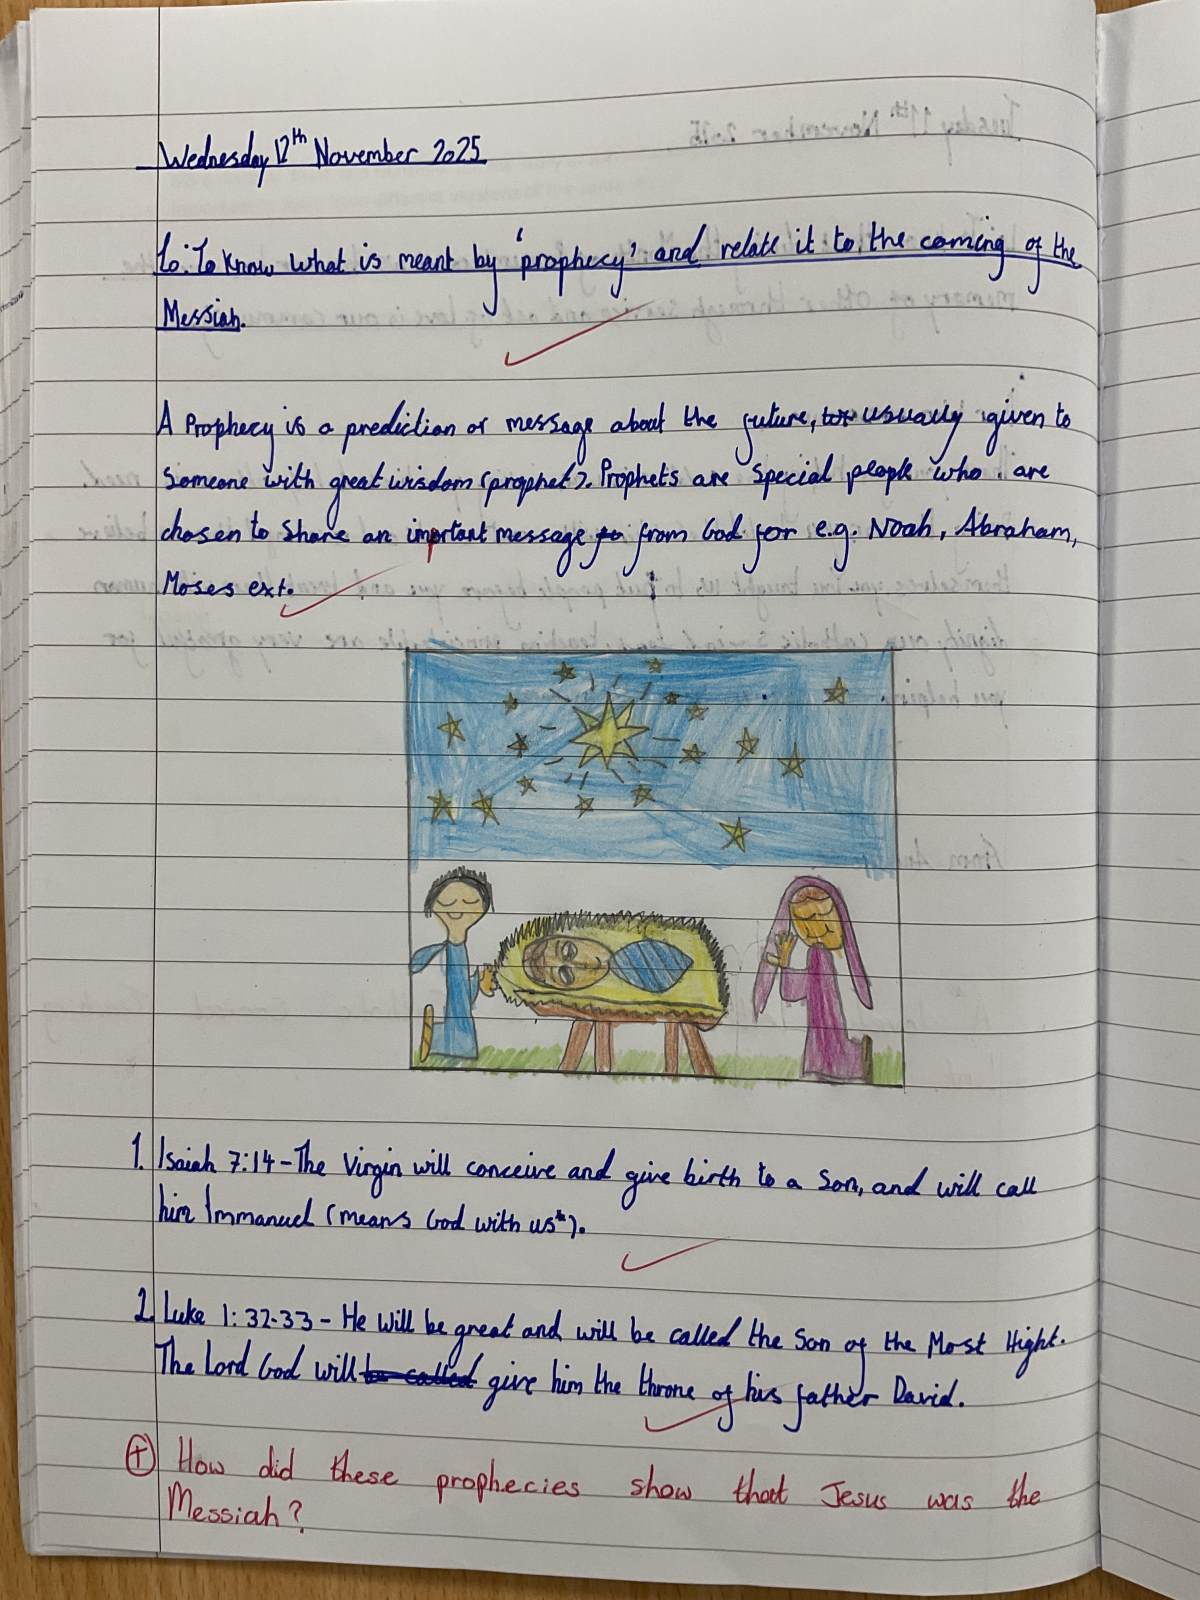 Wednesday 12th November 2025
Lo: To know what is meant by 'prophecy' and relate it to the coming of the
Messiah.
A Prophecy is a prediction or message about the future, usually given to
someone with great wisdom (prophet). Prophets are special people who are
chosen to share an important message from God for e.g. Noah, Abraham,
Moses ext.
1. Isaiah 7:14 - The Virgin will conceive and give birth to a son, and will call
him Immanuel (means God with us").
2. Luke 1:32-33 - He will be great and will be called the Son of the Most Hight.
The Lord God will be called give him the throne of his father David.
+ How did these prophecies show that Jesus was the
Messiah?